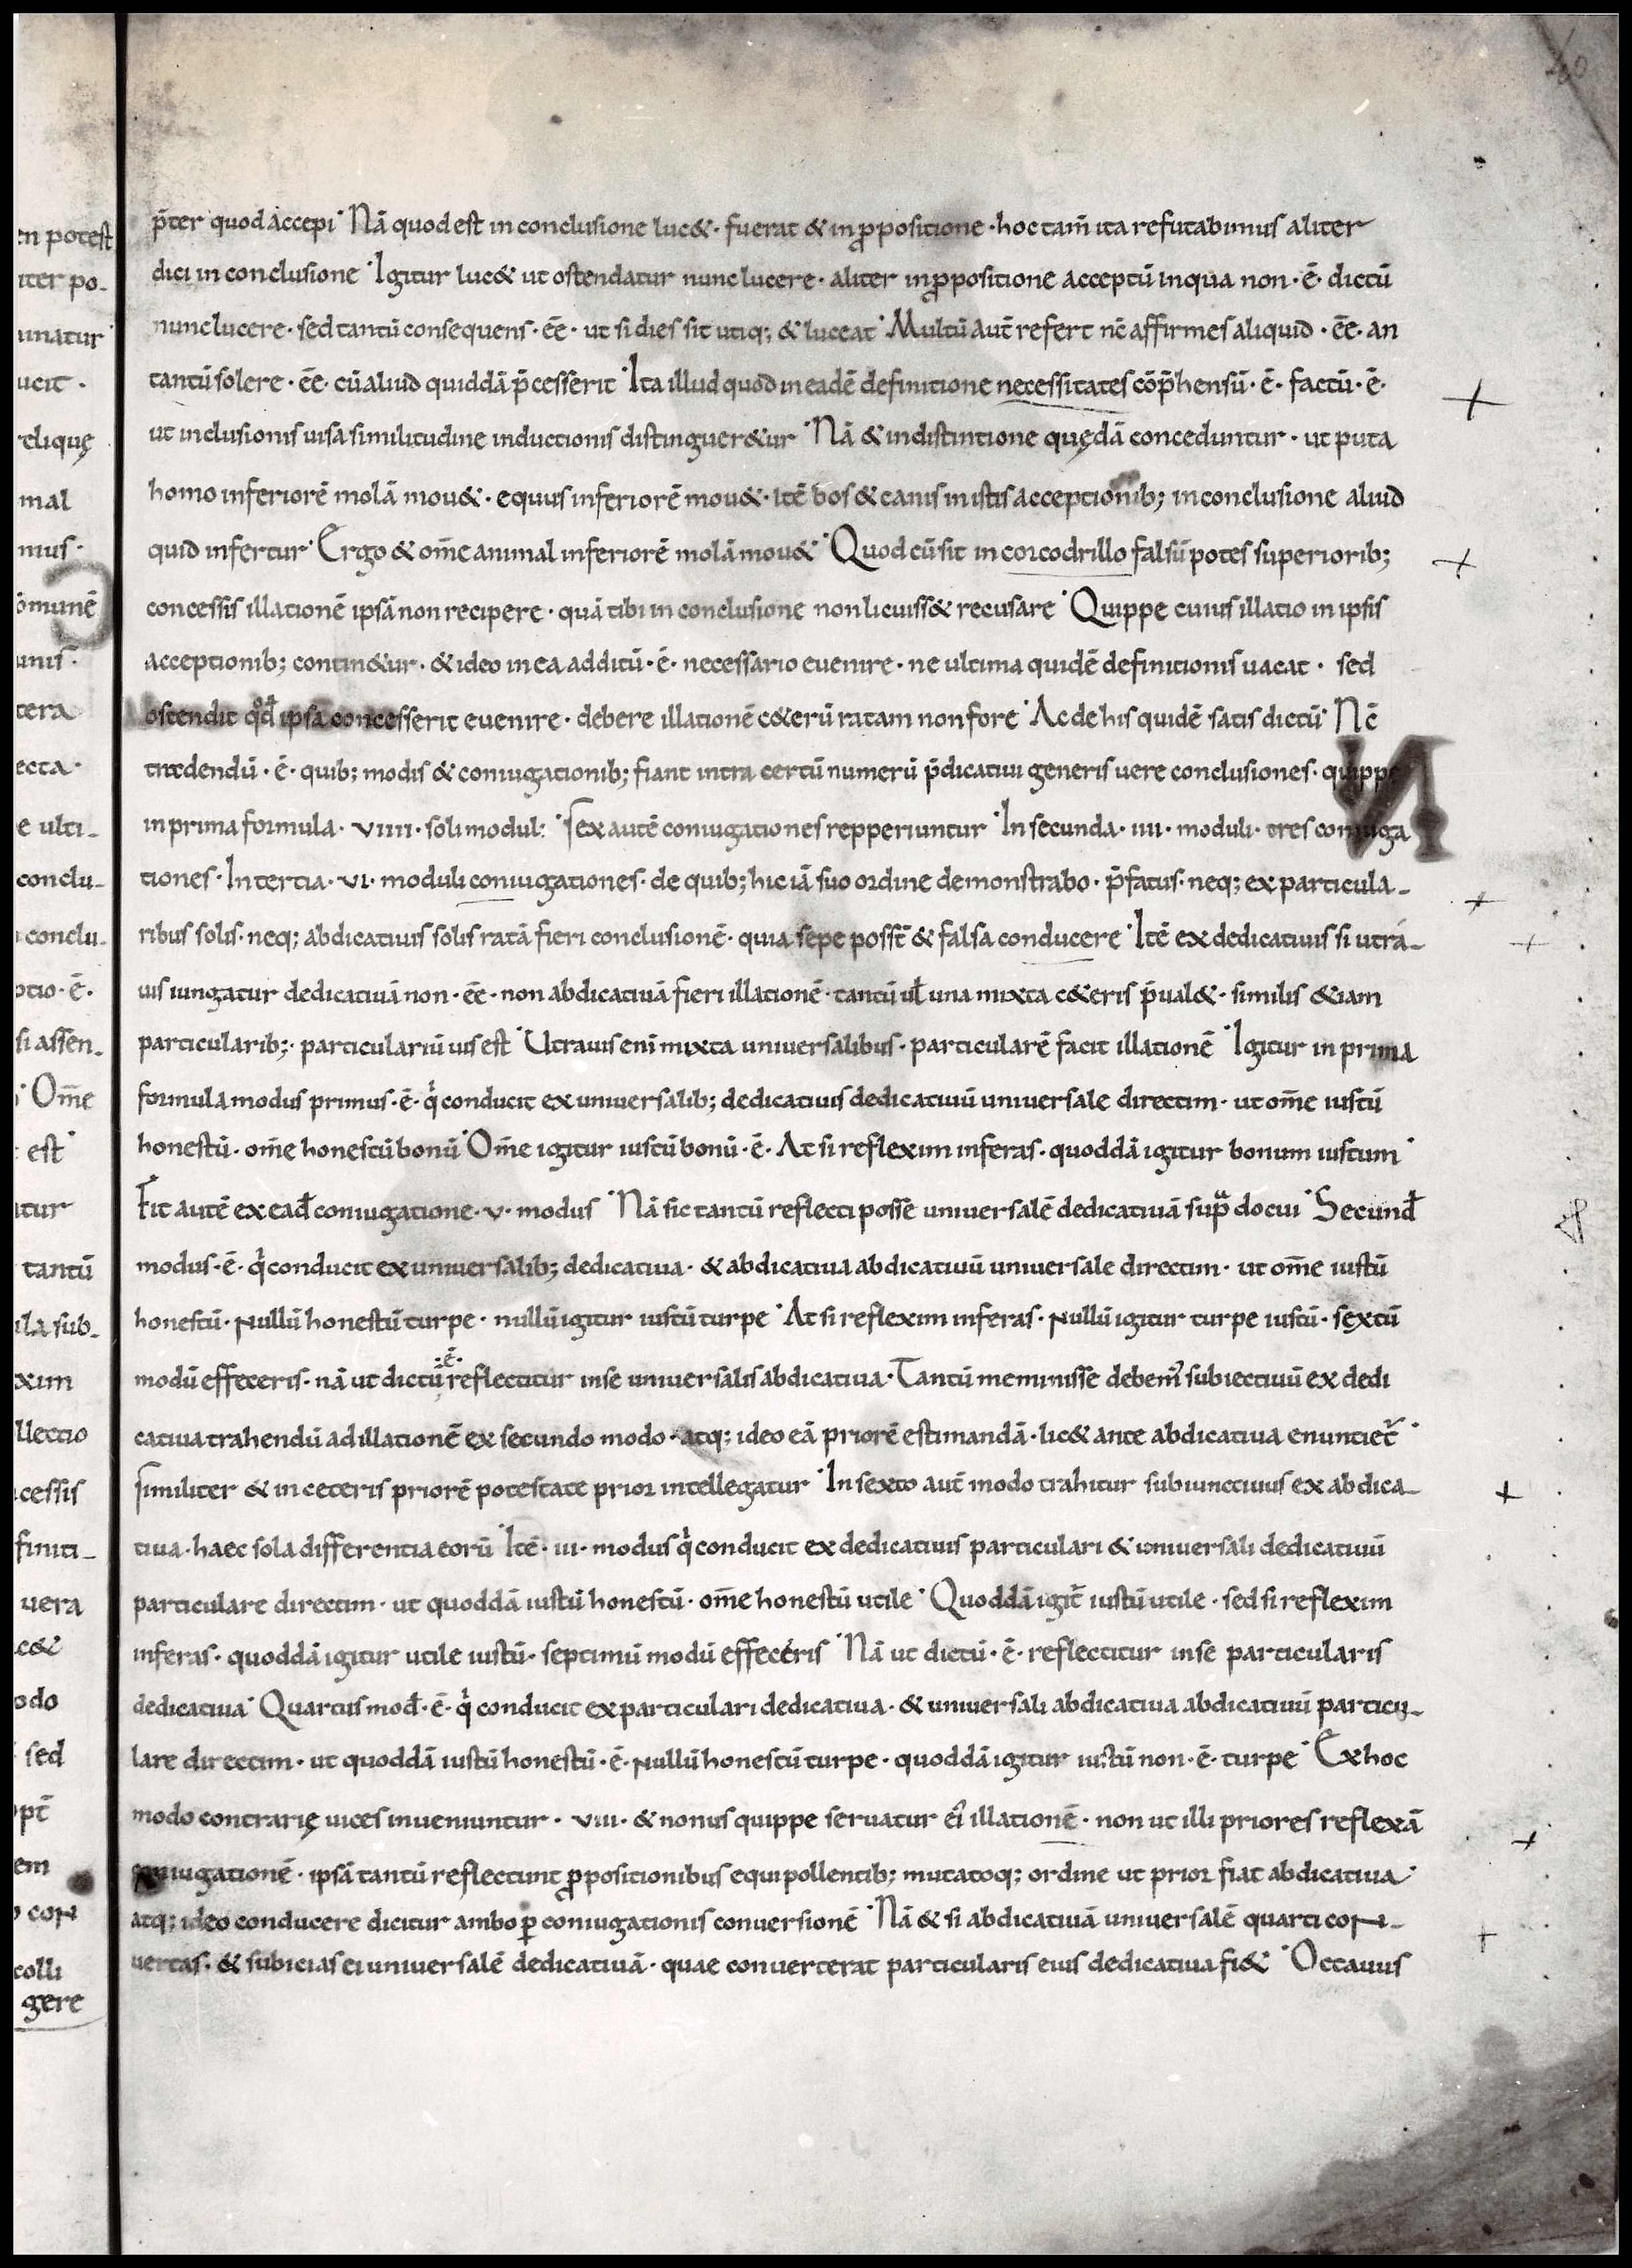 en potest
iter po-
unatur
ucit ·
reliquę
mal
mus·
ōmunē
unis·
tera
ecta·
e ulti-
conclu-
conclu-
ptio·ē·
si assen-
Om̄e
est
atur
tantū
ila sub-
xim
llectio
cessis
finiti-
uera
c&
odo
sed
pt̄
em
con
colli
gere
p̄ter quod accepi· Nā quod est in conclusione luc&· fuerat & in ꝓpositione · hoc tam̄ ita refutabimus aliter
dici in conclusione · Igitur luc& ut ostendatur nunc lucere · aliter in ꝓpositione acceptū in qua non · ē · dictū
nunc lucere · sed tantū consequens · ēē · ut si dies sit utiq; & luceat · Multū aut̄ refert nē affirmes aliquid · ēē · an
tantū solere · ēē · cū aliud quiddā p̄cesserit · Ita illud quod in eadē definitione necessitates cōp̄hensū · ē · factū · ē ·
ut inclusionis uisa similitudine inductionis distinguer&ur · Nā & in distintione quędā conceduntur · ut puta
homo inferiorē molā mou& · equus inferiorē mou& · itē bos & canis in istis acceptionib; in conclusione aliud
quid infertur · Ergo & om̄e animal inferiorē molā mou& · Quod cū sit in corcodrillo falsū potes superiorib;
concessis illationē ipsā non recipere · quā tibi in conclusione non licuiss& recusare · Quippe cuius illatio in ipsis
acceptionib; contin&ur · & ideo in ea additū · ē · necessario euenire · ne ultima quidē definitionis uacat · sed
ostendit qđ ipsa concesserit euenire · debere illationē c&erū ratam non fore · Ac de his quidē satis dictū · Nē
tradendū · ē · quib; modis & coniugationib; fiant intra certū numerū p̄dicatiui generis uere conclusiones · quippe
N
in prima formula · VIIII · soli moduli · Sex autē coniugationes repperiuntur · In secunda · IIII · moduli · tres coniuga
tiones · In tertia · VI · moduli coniugationes · de quib; hic iā suo ordine demonstrabo · p̄fatus · neq; ex particula-
ribus solis · neq; abdicatiuis solis ratā fieri conclusionē · quia sepe posst̄ & falsa conducere · Itē ex dedicatiuis si utra-
uis iungatur dedicatiuā non · ēē · non abdicatiuā fieri illationē · tantū uł una mixta c&eris p̄ual& · similis &iam
particularib; · particulariū uis est · Utrauis enī mixta uniuersalibus · particularē facit illationē · Igitur in prima
formula modus primus · ē · q̇ conducit ex uniuersalib; dedicatiuis dedicatiuū uniuersale directim · ut om̄e iustū
honestū · om̄e honestū bonū · Om̄e igitur iustū bonū · ē · At si reflexim inferas · quoddā igitur bonum iustum ·
Fit autē ex eađ coniugatione · V · modus · Nā sic tantū reflecti posse uniuersalē dedicatiuā sup̄ docui · Secunđ
modus · ē · q̇ conducit ex uniuersalib; dedicatiua · & abdicatiua abdicatiuū uniuersale directim · ut om̄e iustū
honestū · Nullū honestū turpe · nullū igitur iustū turpe · At si reflexim inferas · Nullū igitur turpe iustū · sextū
·ē·
modū effeceris · nā ut dictū reflectitur inse uniuersalis abdicatiua · Tantū meminisse debem᾽ subiectiuū ex dedi
catiua trahendū ad illationē ex secundo modo · atq; ideo eā priorē estimandā · lic& ante abdicatiua enuntiet̄ ·
similiter & in ceteris priorē potestate prior intellegatur · In sexto aut̄ modo trahitur subiunctiuus ex abdica-
tiua · haec sola differentia eorū · Itē · III · modus q̇ conducit ex dedicatiuis particulari & uniuersali dedicatiuū
particulare directim · ut quoddā iustū honestū · om̄e honestū utile · Quoddā igit̄ iustū utile · sed si reflexim
inferas · quoddā igitur utile iustū · septimū modū effeceris · Nā ut dictū · ē · reflectitur inse particularis
dedicatiua · Quartus mođ · ē · q̇ conducit ex particulari dedicatiua · & uniuersali abdicatiua abdicatiuū particu-
lare directim · ut quoddā iustū honestū · ē · Nullū honestū turpe · quoddā igitur iustū non · ē · turpe · Ex hoc
modo contrarię uices inueniuntur · VIII · & nonus quippe seruatur ei᾽ illationē · non ut illi priores reflexā
coniugationē · ipsā tantū reflectunt ꝓpositionibus equipollentib; mutatoq; ordine ut prior fiat abdicatiua ·
atq; ideo conducere dicitur ambo ꝑ coniugationis conuersionē · Nā & si abdicatiuā uniuersalē quarti con-
uertas · & subicias ei uniuersalē dedicatiuā · quae conuerterat particularis eius dedicatiua fi& · Octauus